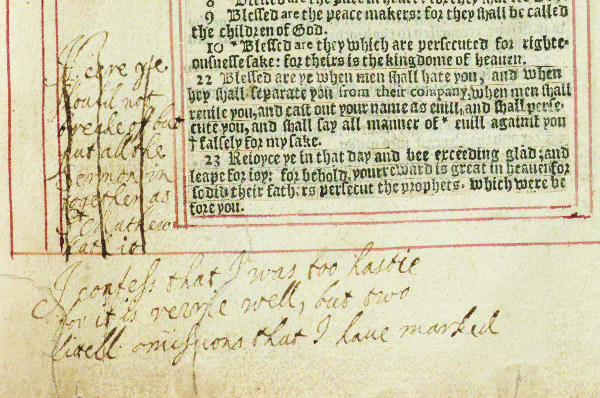 9 Blessed are the peace makers: for they shall be called
the children of God.
10 * Blessed are they which are persecuted for righte-
ousnesse sake: for theirs is the kingdome of heauen.
22 Blessed are ye when men shall hate you, and when
hey shall separate you from their company, when men shall
reuile you, and cast out your name as euill, and shall perse-
cute you, and shall say all manner of * euill against you
† falsely for my sake.
23 Reioyce ye in that day and bee exceeding glad; and
leape for ioy: for behold, your reward is great in heauen: for
so did their fathers persecut the prophets. which were be
fore you.
Heere ye
should not
breake of but
put all the
Sermon in
together as
St Mathew
hath it
I confess that I was too hastie
for it is verrie well, but two
litell omissions that I haue marked